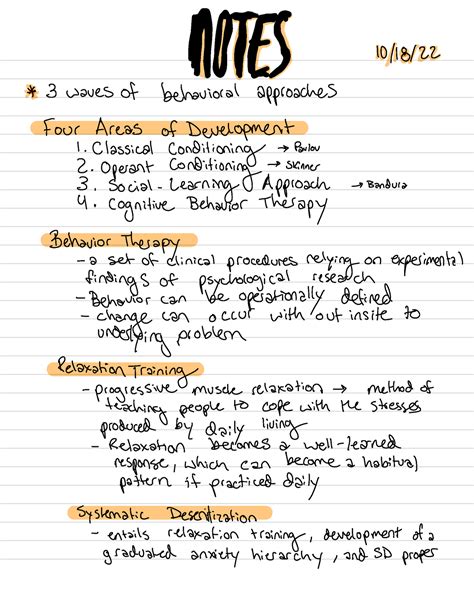 NOTES
10/18/22
* 3 waves of behavioral approaches
Four Areas of Development
1. Classical Conditioning → Pavlov
2. Operant Conditioning → Skinner
3. Social-Learning Approach → Bandura
4. Cognitive Behavior Therapy
Behavior Therapy
- a set of clinical procedures relying on experimental
findings of psychological research
- Behavior can be operationally defined
- change can occur with out insite to
underlying problem
Relaxation Training
- progressive muscle relaxation → method of
teaching people to cope with the stresses
produced by daily living
- Relaxation becomes a well-learned
response, which can become a habitual
pattern if practiced daily
Systematic
- entails relaxation training, development of a
graduated anxiety hierarchy, and SD proper